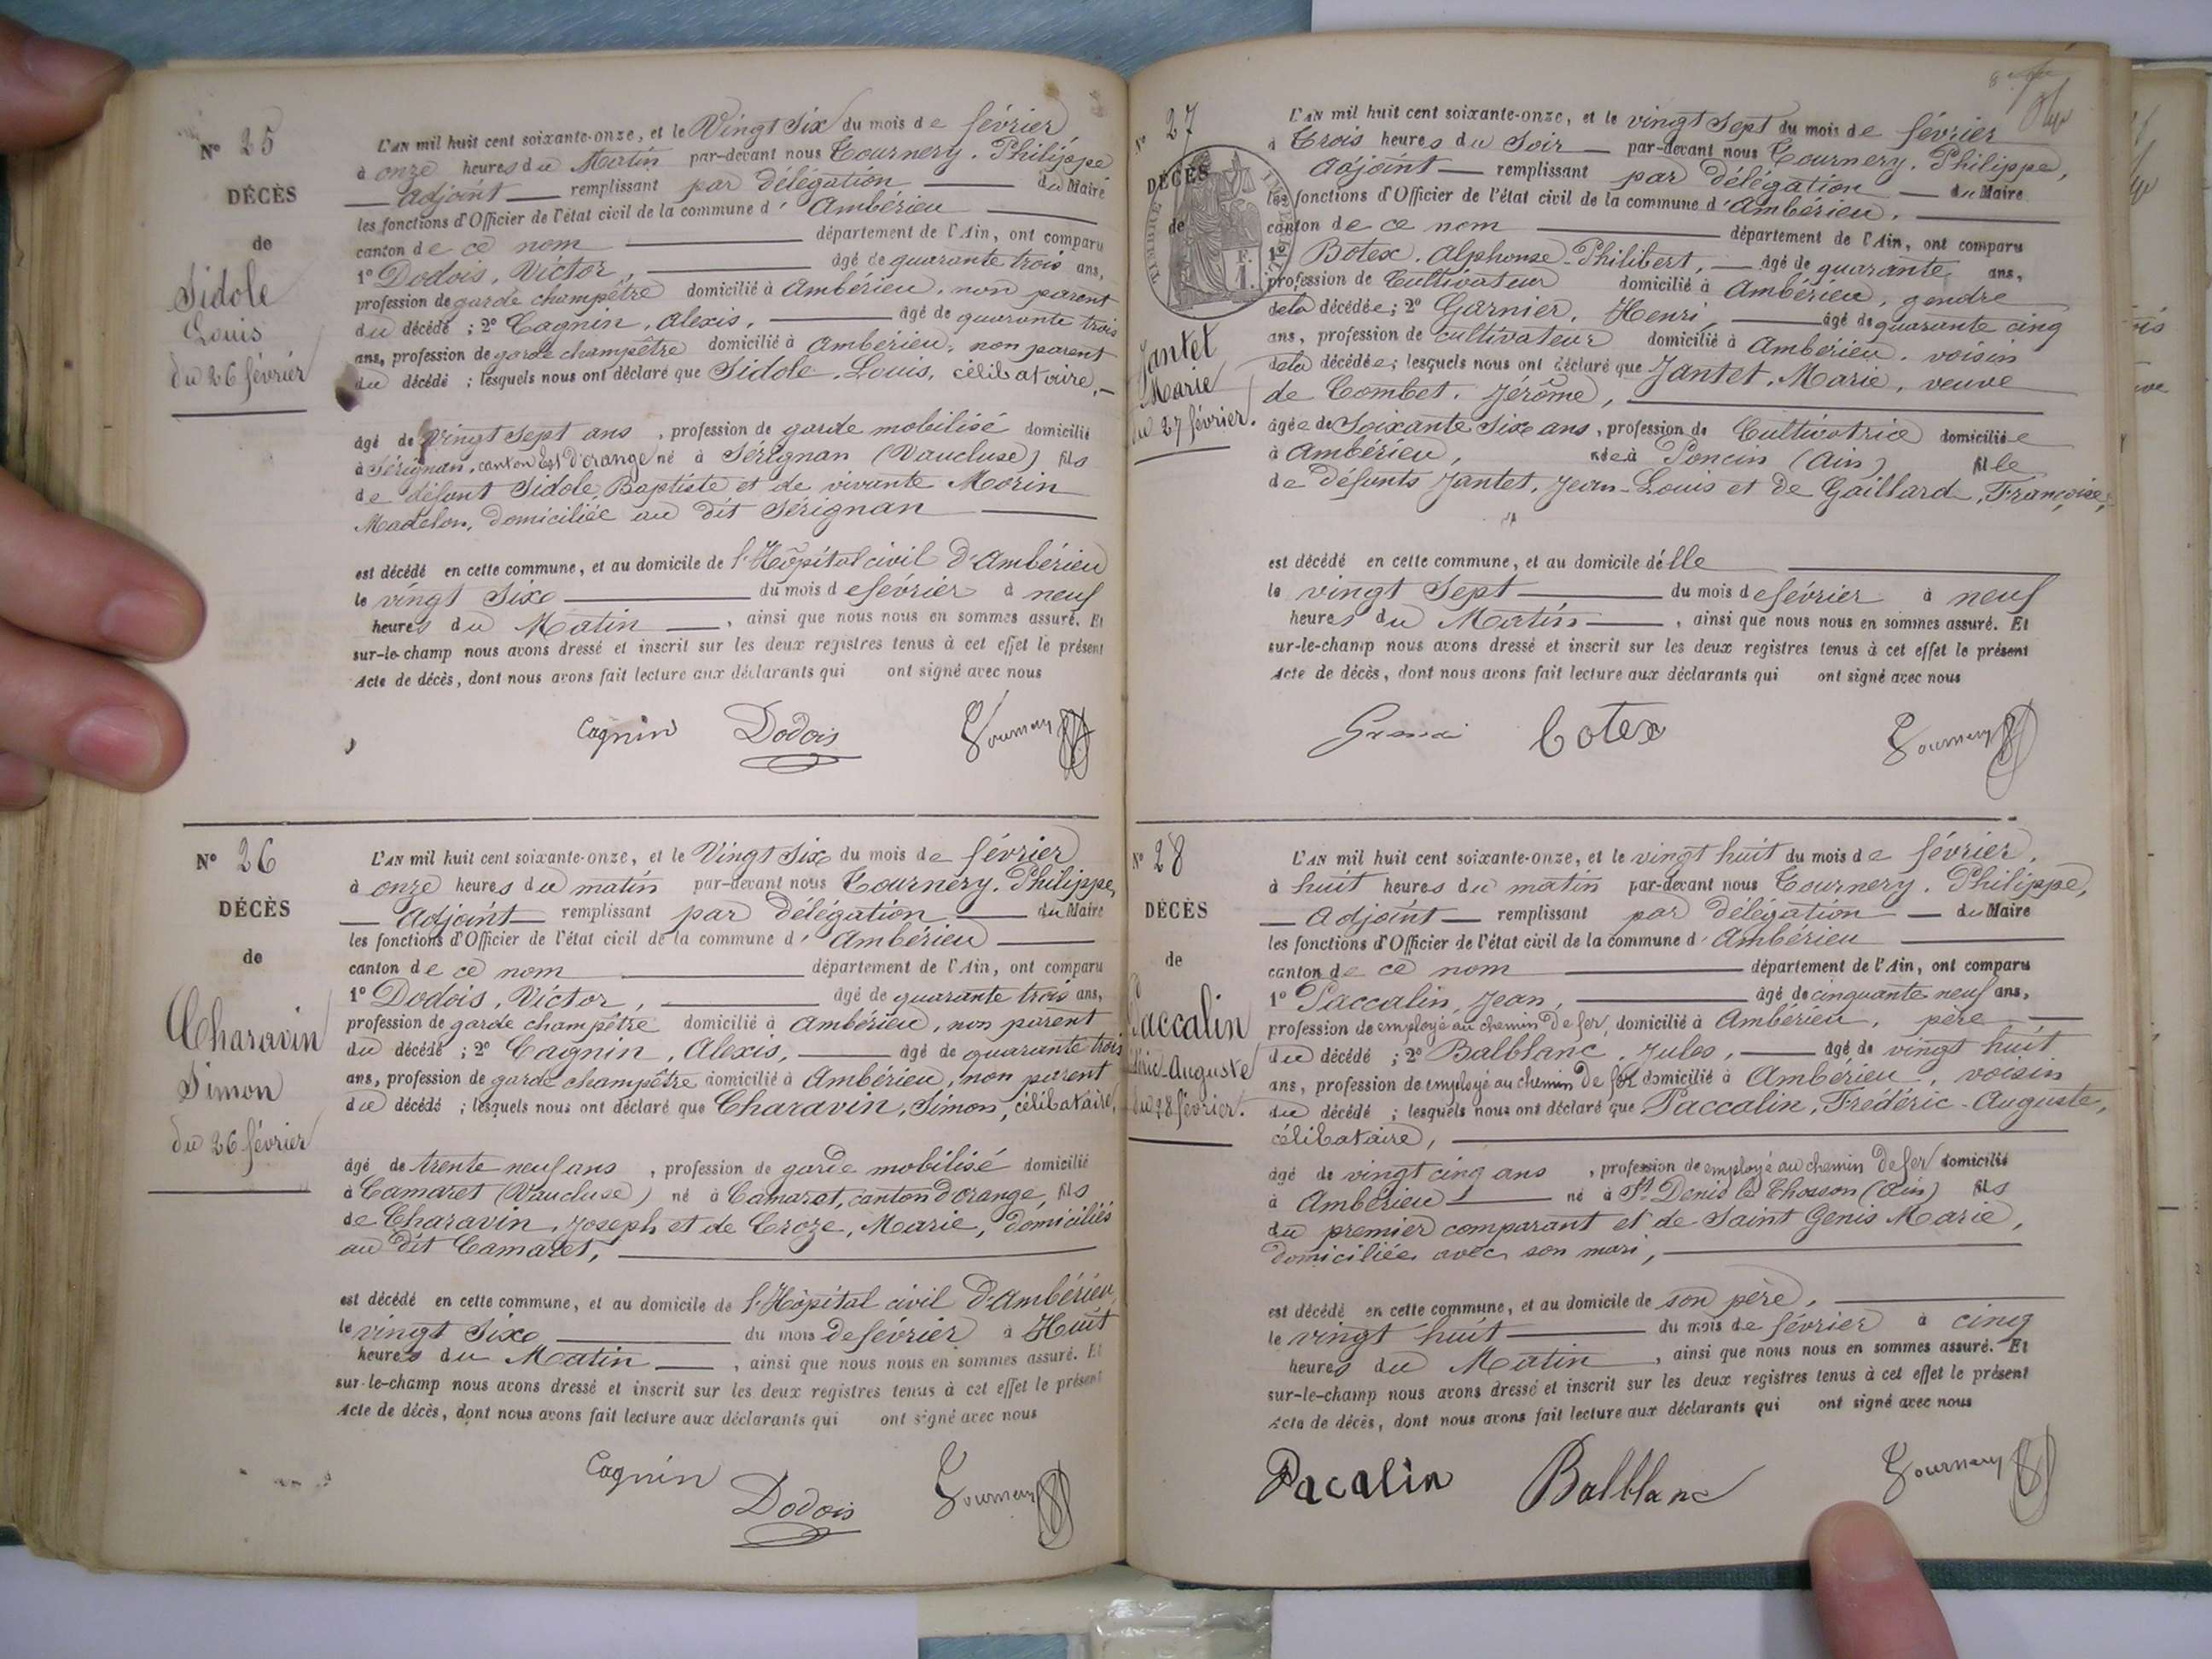 N° 25
DÉCÈS
de
Sidole
Louis
du 26 février
L'AN mil huit cent soixante-onze, et le Vingt Six du mois de février
à onze heures du Matin par-devant nous Tournery. Philippe
adjoint remplissant par délégation du Maire
les fonctions d'Officier de l'état civil de la commune d' Ambérieu
canton de ce nom département de l'Ain, ont comparu
1° Dodois, Victor, âgé de quarante trois ans,
profession de garde champêtre domicilié à Ambérieu, non parent
du décédé ; 2° Cagnin, Alexis, âgé de quarante trois
ans, profession de garde champêtre domicilié à Ambérieu, non parent
du décédé ; lesquels nous ont déclaré que Sidole, Louis, célibataire,
âgé de vingt sept ans , profession de garde mobilisé domicilié
à Sérignan, canton Est d'orange né à Sérignan (Vaucluse) fils
de défunt Sidole, Baptiste et de vivante Morin
Madelon, domiciliée au dit Sérignan
est décédé en cette commune, et au domicile de l'Hôpital civil d'Ambérieu
le vingt Six du mois de février à neuf
heures du Matin , ainsi que nous nous en sommes assuré. Et
sur-le-champ nous avons dressé et inscrit sur les deux registres tenus à cet effet le présent
Acte de décès, dont nous avons fait lecture aux déclarants qui ont signé avec nous
Cagnin Dodois Tournery
N° 26
DÉCÈS
de
Charavin
Simon
du 26 février
L'AN mil huit cent soixante-onze, et le Vingt Six du mois de février
à onze heures du matin par-devant nous Tournery. Philippe,
Adjoint remplissant par délégation du Maire
les fonctions d'Officier de l'état civil de la commune d' Ambérieu
canton de ce nom département de l'Ain, ont comparu
1° Dodois, Victor, âgé de quarante trois ans,
profession de garde champêtre domicilié à Ambérieu, non parent
du décédé ; 2° Cagnin, Alexis, âgé de quarante trois
ans, profession de garde champêtre domicilié à Ambérieu, non parent
du décédé ; lesquels nous ont déclaré que Charavin, Simon, célibataire,
âgé de trente neuf ans , profession de garde mobilisé domicilié
à Camaret (Vaucluse) né à Camaret, canton d'orange, fils
de Charavin, Joseph et de Croze, Marie, domiciliés
au dit Camaret,
est décédé en cette commune, et au domicile de l'Hôpital civil d'Ambérieu,
le vingt Six du mois de février à Huit
heures du Matin , ainsi que nous nous en sommes assuré. Et
sur-le-champ nous avons dressé et inscrit sur les deux registres tenus à cet effet le présent
Acte de décès, dont nous avons fait lecture aux déclarants qui ont signé avec nous
Cagnin Dodois Tournery
N° 27
DÉCÈS
de
Jantet
Marie
du 27 février.
L'AN mil huit cent soixante-onze, et le vingt Sept du mois de février
à Trois heures du Soir par-devant nous Tournery. Philippe,
Adjoint remplissant par délégation du Maire
les fonctions d'Officier de l'état civil de la commune d'Ambérieu,
canton de ce nom département de l'Ain, ont comparu
1° Botex, Alphonse-Philibert, âgé de quarante ans,
profession de Cultivateur domicilié à Ambérieu, gendre
de la décédée ; 2° Garnier, Henri, âgé de quarante cinq
ans, profession de cultivateur domicilié à Ambérieu, voisin
de la décédée ; lesquels nous ont déclaré que Jantet, Marie, veuve
de Combet, Jérôme,
âgée de Soixante Six ans , profession de Cultivatrice domiciliée
à Ambérieu, née à Poncin (Ain) fille
de défunts Jantet, Jean-Louis et de Gaillard, Françoise,
est décédé en cette commune, et au domicile d'elle
le vingt Sept du mois de février à neuf
heures du Matin , ainsi que nous nous en sommes assuré. Et
sur-le-champ nous avons dressé et inscrit sur les deux registres tenus à cet effet le présent
Acte de décès, dont nous avons fait lecture aux déclarants qui ont signé avec nous
Botex Tournery
N° 28
DÉCÈS
de
Paccalin
Auguste
du 28 février.
L'AN mil huit cent soixante-onze, et le vingt huit du mois de février,
à huit heures du matin par-devant nous Tournery. Philippe,
adjoint remplissant par délégation du Maire
les fonctions d'Officier de l'état civil de la commune d' Ambérieu
canton de ce nom département de l'Ain, ont comparu
1° Paccalin, Jean, âgé de cinquante neuf ans,
profession de employé au chemin de fer, domicilié à Ambérieu, père
du décédé ; 2° Balblanc, Jules, âgé de vingt huit
ans, profession de employé au chemin de fer domicilié à Ambérieu, voisin
du décédé ; lesquels nous ont déclaré que Paccalin, Frédéric-Auguste,
célibataire,
âgé de vingt cinq ans , profession de employé au chemin de fer domicilié
à Ambérieu né à St Denis le Chosson (Ain) fils
du premier comparant et de Saint Genis Marie,
domiciliée avec son mari,
est décédé en cette commune, et au domicile de son père,
le vingt huit du mois de février à cinq
heures du Matin , ainsi que nous nous en sommes assuré. Et
sur-le-champ nous avons dressé et inscrit sur les deux registres tenus à cet effet le présent
Acte de décès, dont nous avons fait lecture aux déclarants qui ont signé avec nous
Pacalin Balblanc Tournery